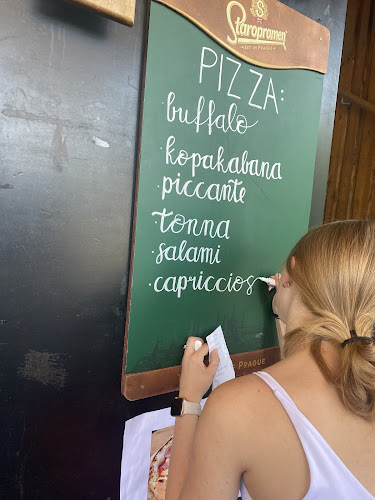 Staropramen
EST IN PRAGUE
PIZZA:
buffalo
· kopakabana
· piccante
· tonna
· salami
· capriccios
PRAGUE